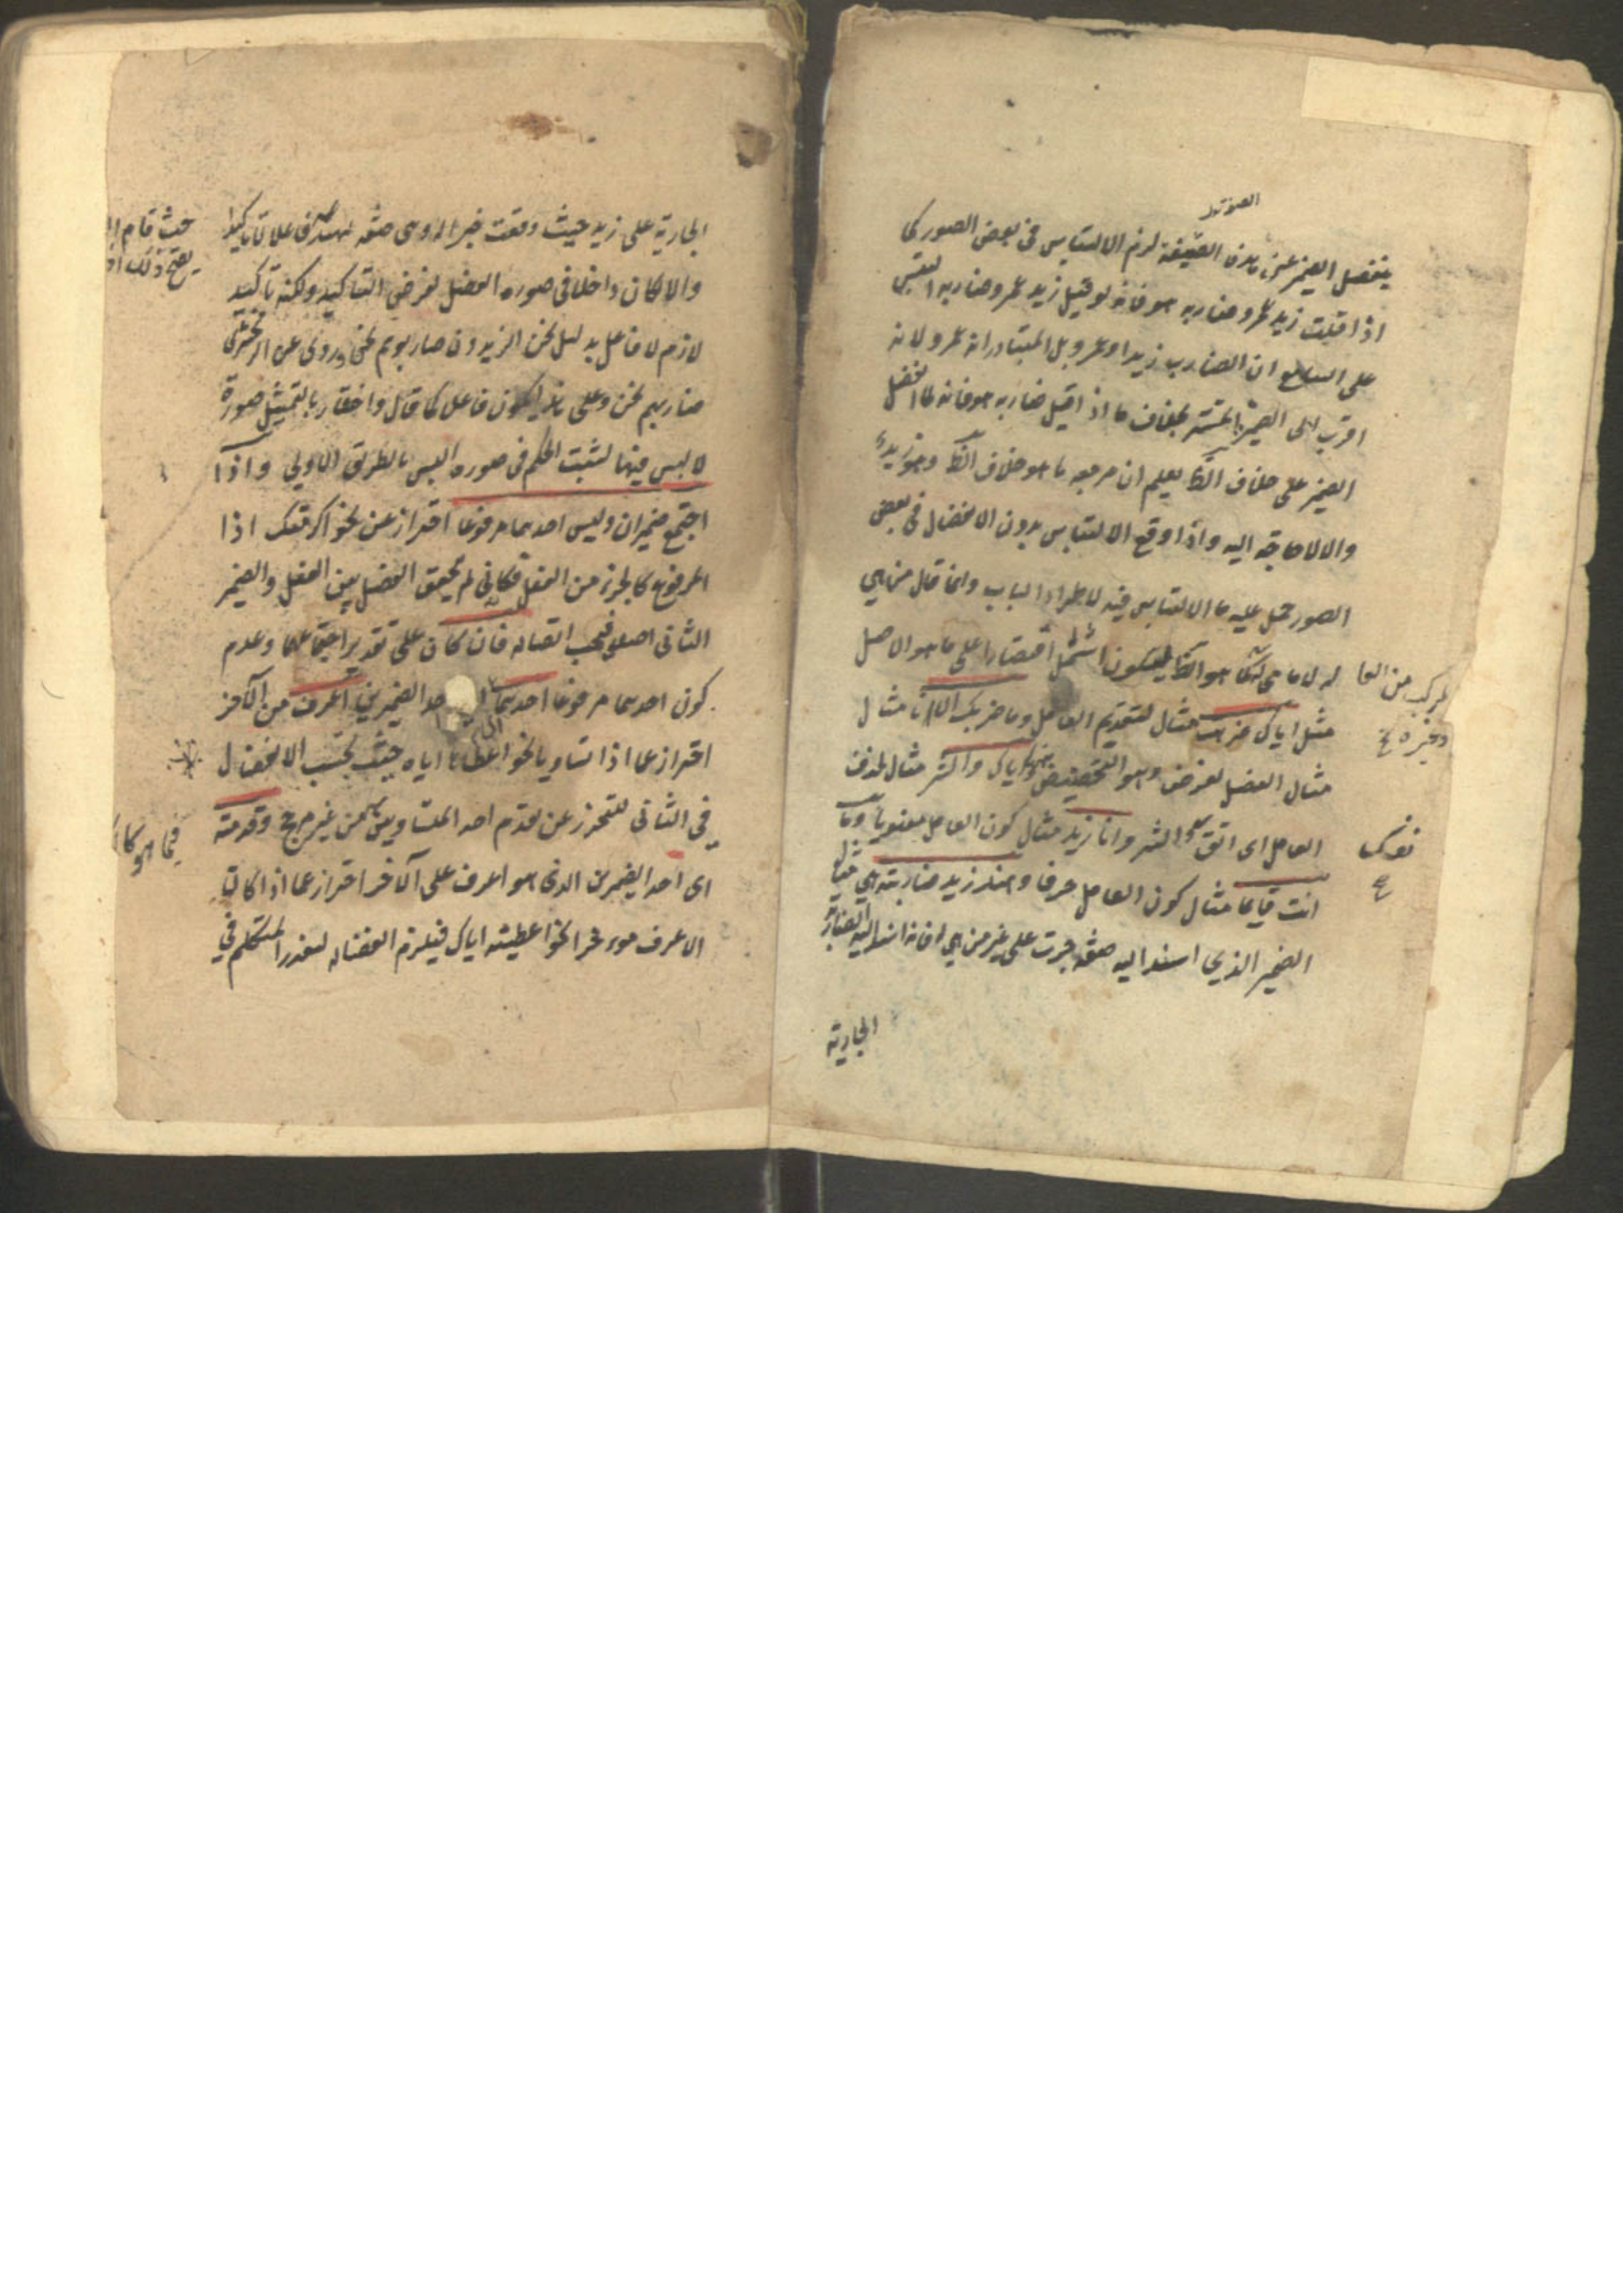 الصورة
ينفصل الضمير عن هذه الصيغة لزم الالتباس في بعض الصور كما
اذا قلت زيد عمرو ضاربه هو فانه لو قيل زيد عمرو ضاربه التبس
على السامع ان الضارب زيد او عمرو بل المتبادر انه عمرو لانه
اقرب الى الضمير المستتر بخلاف ما اذا قيل ضاربه هو فانه لما انفصل
الضمير على خلاف الظ يعلم ان مرجعه ما هو خلاف الظ وهو زيد
والا لا حاجة اليه واذا وقع الالتباس بدون الانفصال في بعض
الصور حمل عليه ما لا التباس فيه لاطراد الباب وانما قال من هي
له لا ما هي له كما هو الظ ليكون اشمل اقتصارا على ما هو الاصل
مثل اياك ضربت مثال لتقديم العامل وما ضربك الا انا مثال
مثال الفصل لغرض وهو التخصيص واياك والشر مثال لحذف
العامل اى اتق والشر وانا زيد مثال كون العامل معنويا وما
انت قايما مثال كون العامل حرفا وهند زيد ضاربته هي مثال
الضمير الذي اسند اليه صفة جرت على غير من هي له فانه اسند اليه الضاربة
الجارية
الجارية على زيد حيث وقعت خبرا له وهى صفة لهند فاعلا لا تاكيدا
والا لكان داخلا في صورة الفصل لغرض التاكيد ولكنه تاكيد
لازم لا فاعل بدليل نحن الزيدون ضاربوهم نحن وروى عن الزمخشرى
ضاربهم نحن وعلى هذا يكون فاعل كما قال واختار بالتمثيل صورة
لا لبس فيها لثبت الحكم في صورة اللبس بالطريق الاولي واذا
اجتمع ضميران وليس احدهما مرفوعا احتراز عن نحو اكرمتك اذا
المرفوع كالجزء من الفعل فكانه لم يتحقق الفصل بين الفعل والضمير
الثاني اصلا فيجب اتصاله فان كان على تقدير اجتماعهما وعدم
كون احدهما مرفوعا احدهما احد الضميرين اعرف من الآخر
احتراز عما اذا تساويا نحو اعطاها اياه حيث يجب الانفصال
في الثاني للتحرز عن تقدم احد المتساويين من غير مرجح وقدمته
اى احد الضميرين الذى هو اعرف على الآخر احتراز عما اذا كان
الاعرف موءخرا نحو اعطيته اياك فيلزم انفصاله لتعذر المتكلم في